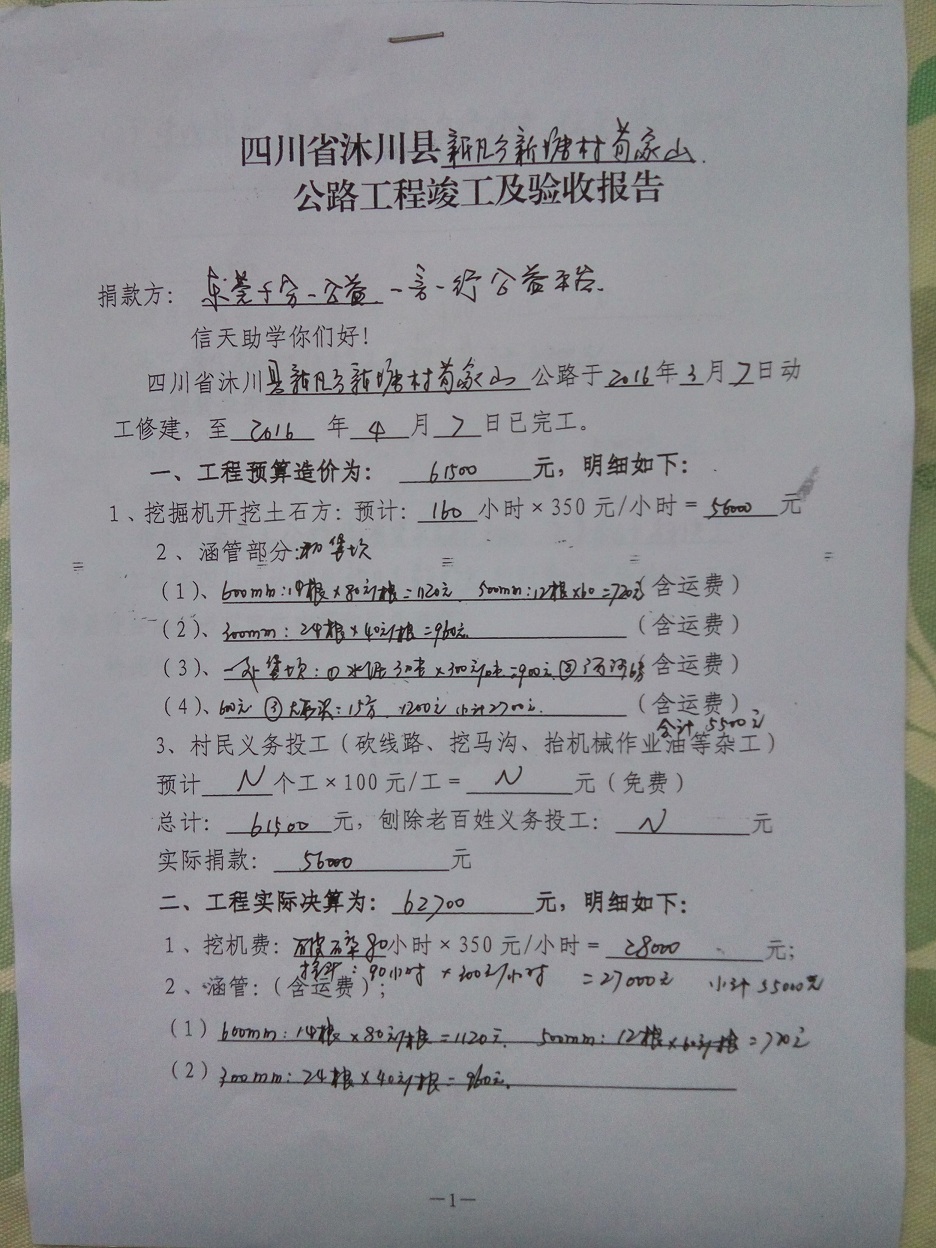 四川省沐川县新凡乡新塘村苟家山
公路工程竣工及验收报告
捐款方：东莞千分一公益 一言一行公益平台.
信天助学你们好！
四川省沐川县新凡乡新塘村苟家山公路于2016年3月7日动
工修建，至2016年4月7日已完工。
一、工程预算造价为：61500元，明细如下：
1、挖掘机开挖土石方：预计：160小时×350元/小时=56000元
2、涵管部分:和堡坎
(1)、600mm:14根×80元/根=1120元 500mm:12根×60=720元(含运费)
(2)、300mm：24根×40元/根=960元.(含运费)
(3)、一处堡坎：①水泥3吨×300元/吨=900元.②河沙6方(含运费)
(4)、600元 ③大石头：15方 1200元 小计2700元.(含运费)
合计5500元
3、村民义务投工（砍线路、挖马沟、抬机械作业油等杂工）
预计N个工×100元/工=N元（免费）
总计：61500元，刨除老百姓义务投工：N元
实际捐款：56000元
二、工程实际决算为：62700元，明细如下：
1、挖机费：破碎80小时×350元/小时=28000元;
挖斗：90小时×300元/小时=27000元 小计55000元
2、涵管：(含运费)；
(1)600mm：14根×80元/根=1120元. 500mm：12根×60元/根=720元
(2)300mm：24根×40元/根=960元.
—1—